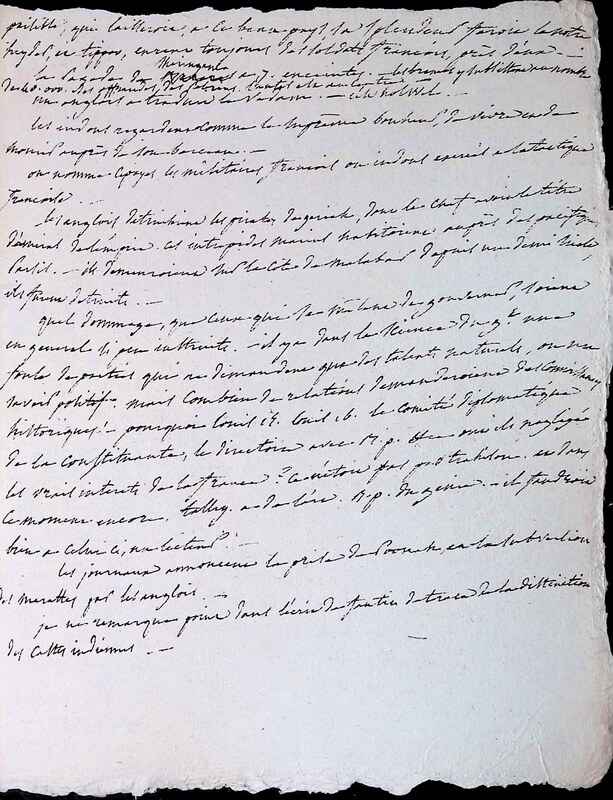 paisible, qui laisseroit, a ce beau pays sa splendeur
heyder, et tippoo, eurent toujours des soldats francois, près d'eux -
la pagode de a 7. enceintes. les brames y subsistent au nombre
de 40.000. des offrandes, des pelerins.
un anglois a traduit le vedam. - c'est holwel.
les indous regardent comme le suprême bonheur, de vivre et de
mourir auprès de son berceau. -
on nomme cypayes les militaires, francois ou indous exercés a la tactique
francoise. -
les anglois detruisirent les pirates d'angriah, dont le chef avoit le titre
d'amiral de l'empire. ces intrepides marins habitoient auprès des pacifiques
parsis. - ils demeuroient sur la côte de malabar depuis un demi siecle,
ils furent detruits. -
quel dommage, que ceux qui se mêlent de gouverner, soient
en general si peu instruits. - il y a dans la science du gt. une
foule de parties qui ne demandent que des talents naturels, ou un
savoir positif. mais combien de relations demanderoient des connoissances
historiques! - pourquoi louis 15. louis 16. le comité diplomatique
de la constituante, le directoire avec B. p. &c ont ils negligé
les vrais interets de la france? ce n'étoit pas par trahison. et dans
ce moment encore. talley. a de l'ési. B. p. du genie. - il faudroit
bien a celui ci, un lecteur!
les journaux annoncent la prise de Poonah, et la subversion
des marattes par les anglois. -
je ne remarque point dans l'écrit de traces de la distinction
des castes indiennes. -